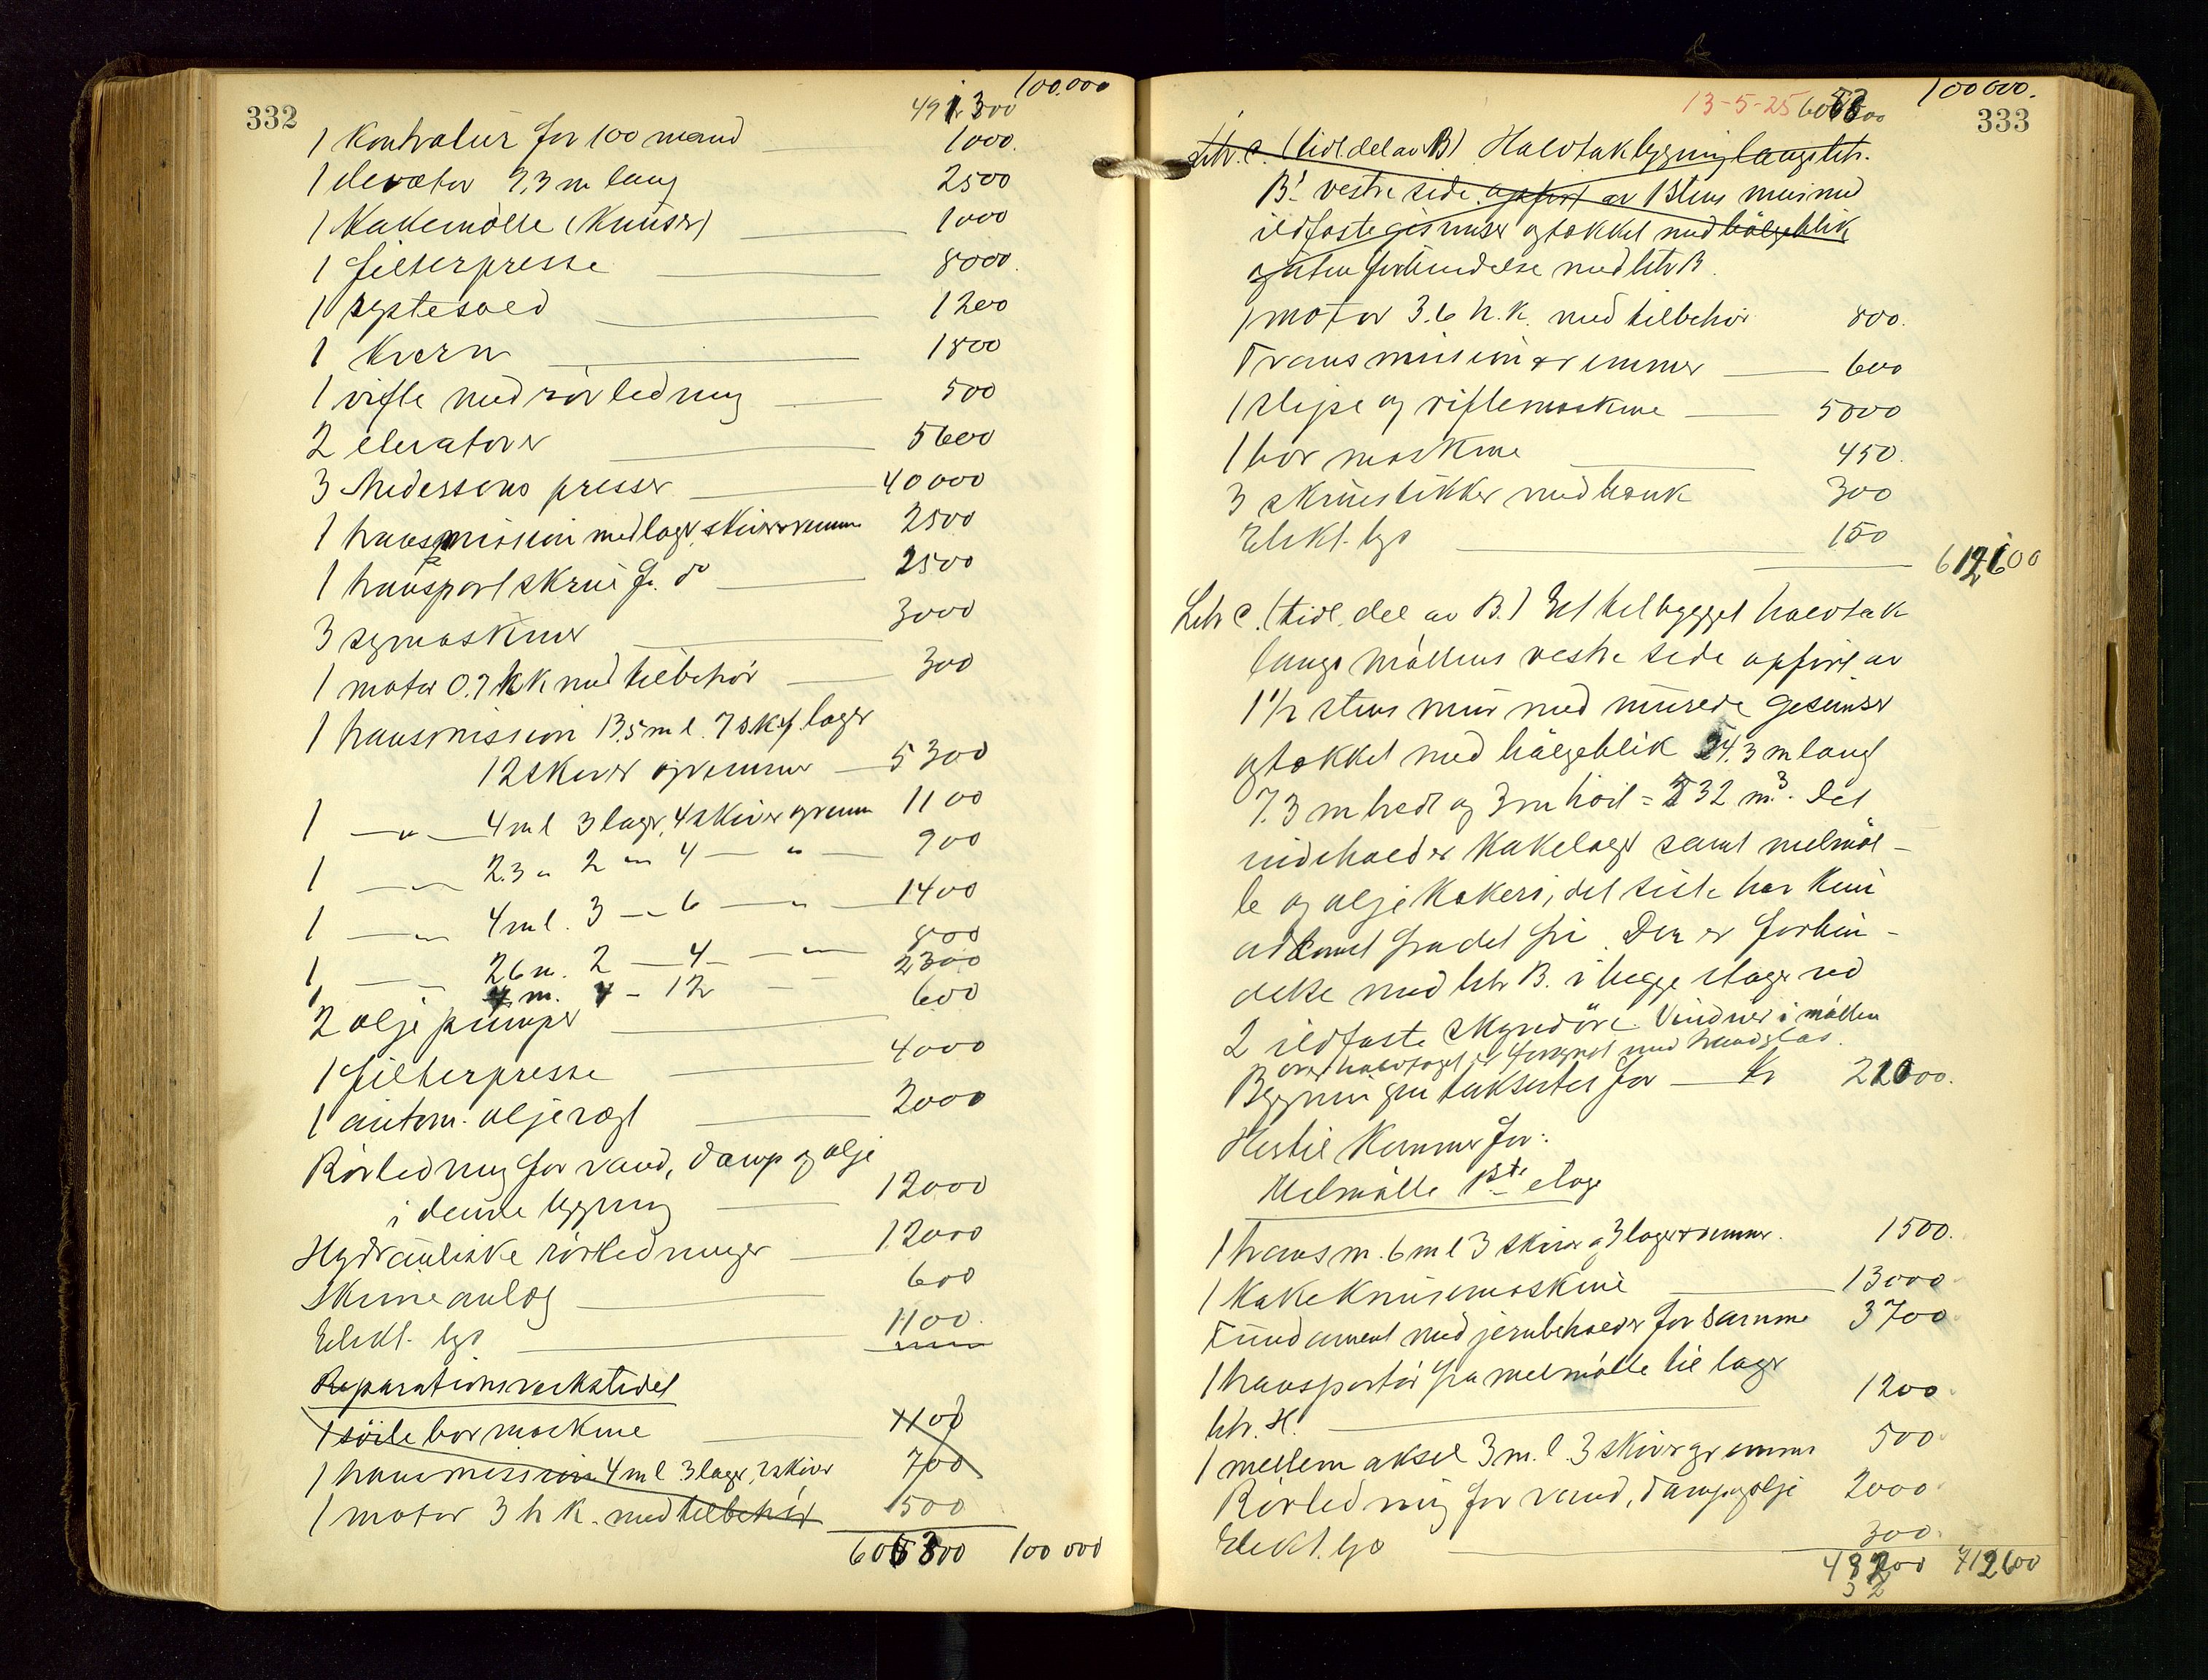 332
100.000
1 Kontrolur for 100 mand 1000.
1 elevator 7,3 m lang 2500
1 Kakemölle (Knuser) 1000
1 filterpresse 8000.
1 rystesold 1200
1 Kvern 1800
1 vifte med rörledning 500
2 elevatorer 5600
3 presser 40000
1 transmission med lager, skiver remme 2500
1 transportskrue f. do 2500
3 symaskiner 3000
1 motor 0.7 h K med tilbehör 300
1 transmission 13,5 m l. 7 lager
12 skiver og remmer 5300
1 —„— 4 m l 3 lager, 4 skiver og remm 1100
1 —„— 2.3 „ 2 „ 4 — „ — 900
1 —„— 4 m l. 3 —„ 6 — „ — 1400
1 — — 2.6 m. 2 — 4 — „ — 800
1 4 m. 4 – 12 — — 2300
2 olje pumper 600
1 filterpresse 4000
1 autom. oljevegt 2000
Rörledning for vand, damp og olje
i denne bygning 12000
Hydrauliske rörledninger 12000
Skinneanlæg 600
Elekt. lys 1100.
Reparationsverkstedet
1 söile bormaskine 1100
1 transmission 4 m l 3 lager, 2 skiver 700
1 motor 3 h k. med tilbehör 500
100 000
13-5-25
100 000.
333
Litr. C. (tidl del av B) Halvtakbygning langs litr.
B's vestre side opfört av 1 Stens mur med
ildfaste gesimser og tækket med bölgeblik
og uten forbindelse med litr B.
1 motor 3.6 h.k. med tilbehör 800.
Transmission & remmer 600
1 slipe og riflemaskine 5000
1 bor maskine 450.
3 skruestikker med bænk 300
Elekt. lys 150
Litr C. (tidl. del av B.) Et tilbygget halvtak
langs möllens vestre side opfört av
1½ stens mur med murede gesimser
og tækket med bölgeblik 24.3 m langt
7.3 m bredt og 3 m höit = 532 m³. Det
indeholder Kakelager samt melmöl-
le og oljekokeri, det siste har kun
adkomst fra det fri. Den er forbin-
delse med litr B. i begge etager ved
2 ildfaste skyvedöre. Vinduer i möllen
over halvtaget er forsynet med traadglas.
Bygningen taksertes for — Kr 21000.
Hertil Kommer for:
Melmölle 1ste etage
1 transm. 6 m l 3 skiver og 3 lager & remmer. 1500.
1 Kakeknusemaskine 13000
Fundament med jernbeholder for samme 3700
1 transportör fra melmölle til lager
litr. H. 1200
1 mellem aksel 3 m. l. 3 skiver og remmer 500
Rörledning for vand, damp og olje 2000
Elekt. lys 300.
712600